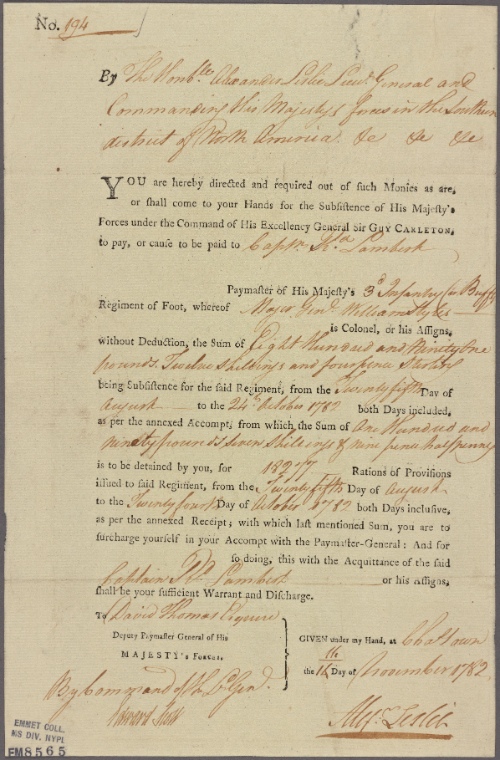 No. 194
By The Honble Alexander Leslie Lieut. General and
Commanding His Majestys forces in the Southern
district of North America &c &c &c
YOU are hereby directed and required out of such Monies as are,
or shall come to your Hands for the Subsistence of His Majesty's
Forces under the Command of His Excellency General Sir GUY CARLETON,
to pay, or cause to be paid to Captn. Rd. Lambert
Paymaster of His Majesty's 3d Infantry (or Buffs
Regiment of Foot, whereof Major Genl. William Styles
is Colonel, or his Assigns,
without Deduction, the Sum of Eight Hundred and Ninety One
pounds Twelve Shillings and fourpence Sterling
being Subsistence for the said Regiment, from the Twenty fifth Day of
August to the 24th October 1782 both Days included,
as per the annexed Accompt; from which the Sum of One Hundred and
ninety pounds seven Shillings & nine pence half penny
is to be detained by you, for 18277 Rations of Provisions
issued to said Regiment, from the Twenty fifth Day of August
to the Twenty fourth Day of October 1782 both Days inclusive,
as per the annexed Receipt; with which last mentioned Sum, you are to
surcharge yourself in your Accompt with the Paymaster-General: And for
so doing, this with the Acquittance of the said
Captain Rd. Lambert or his Assigns,
shall be your sufficient Warrant and Discharge.
To David Thomas Esquire
Deputy Paymaster General of His
MAJESTY's FORCES.
GIVEN under my Hand, at Chas Town
the 11th Day of November 1782
By Command of the Lt. Genl.
Alexr. Leslie
EMMET COLL.
MS DIV. NYPL
EM8565